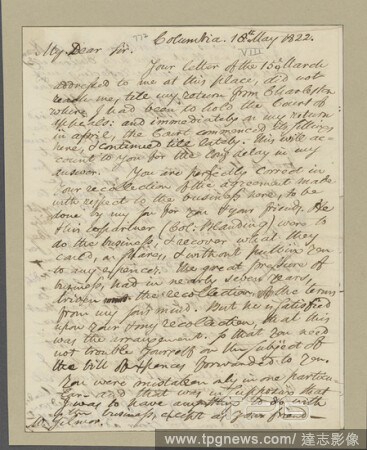 773
Columbia. 18th May 1822.
VIII
My Dear Sir.
Your letter of the 15 March
addressed to me at this place, did not
reach me, till my return from Charleston
where I had been to hold the Court of
Appeals. and immediately on my return
in april, the Court commenced its sitting
here, & continued till lately. This will ac-
count to you for the long delay in my
answer. You are perfectly correct in
your recollection of the agreement made
with respect to the business here, to be
done by my son for you & your friends. He
& his partner (Col. Blanding) were to
do the business, & recover what they
could, on shares, & without putting you
to any expences. The great pressure of
business, had in nearly seven years,
driven the recollection of the terms
from my son's mind. But he is satisfied
upon your & my recollection, that this
was the arrangement. So that you need
not trouble yourself on the subject of
the bill of expences forwarded to you.
You were mistaken only in one particu-
lar. and that was in supposing that
I was to have any thing to do with
the business, except as your friend
Gilmor.
www.tpgnews.com/ 達志影像